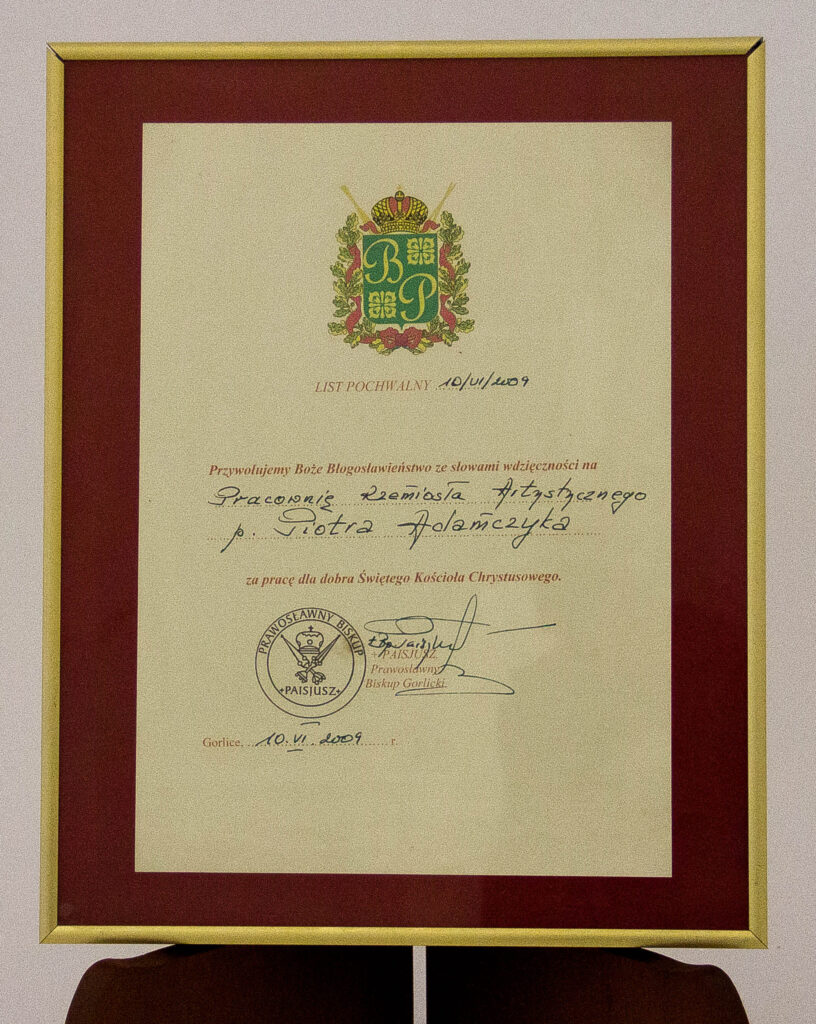 B
P
LIST POCHWALNY 10/VI/2009
Przywołujemy Boże Błogosławieństwo ze słowami wdzięczności na
Pracownię Rzemiosła Artystycznego
p. Piotra Adamczyka
za pracę dla dobra Świętego Kościoła Chrystusowego.
PRAWOSŁAWNY BISKUP
+PAISJUSZ+
+ PAISJUSZ
Prawosławny
Biskup Gorlicki
Gorlice, 10.VI.2009 r.